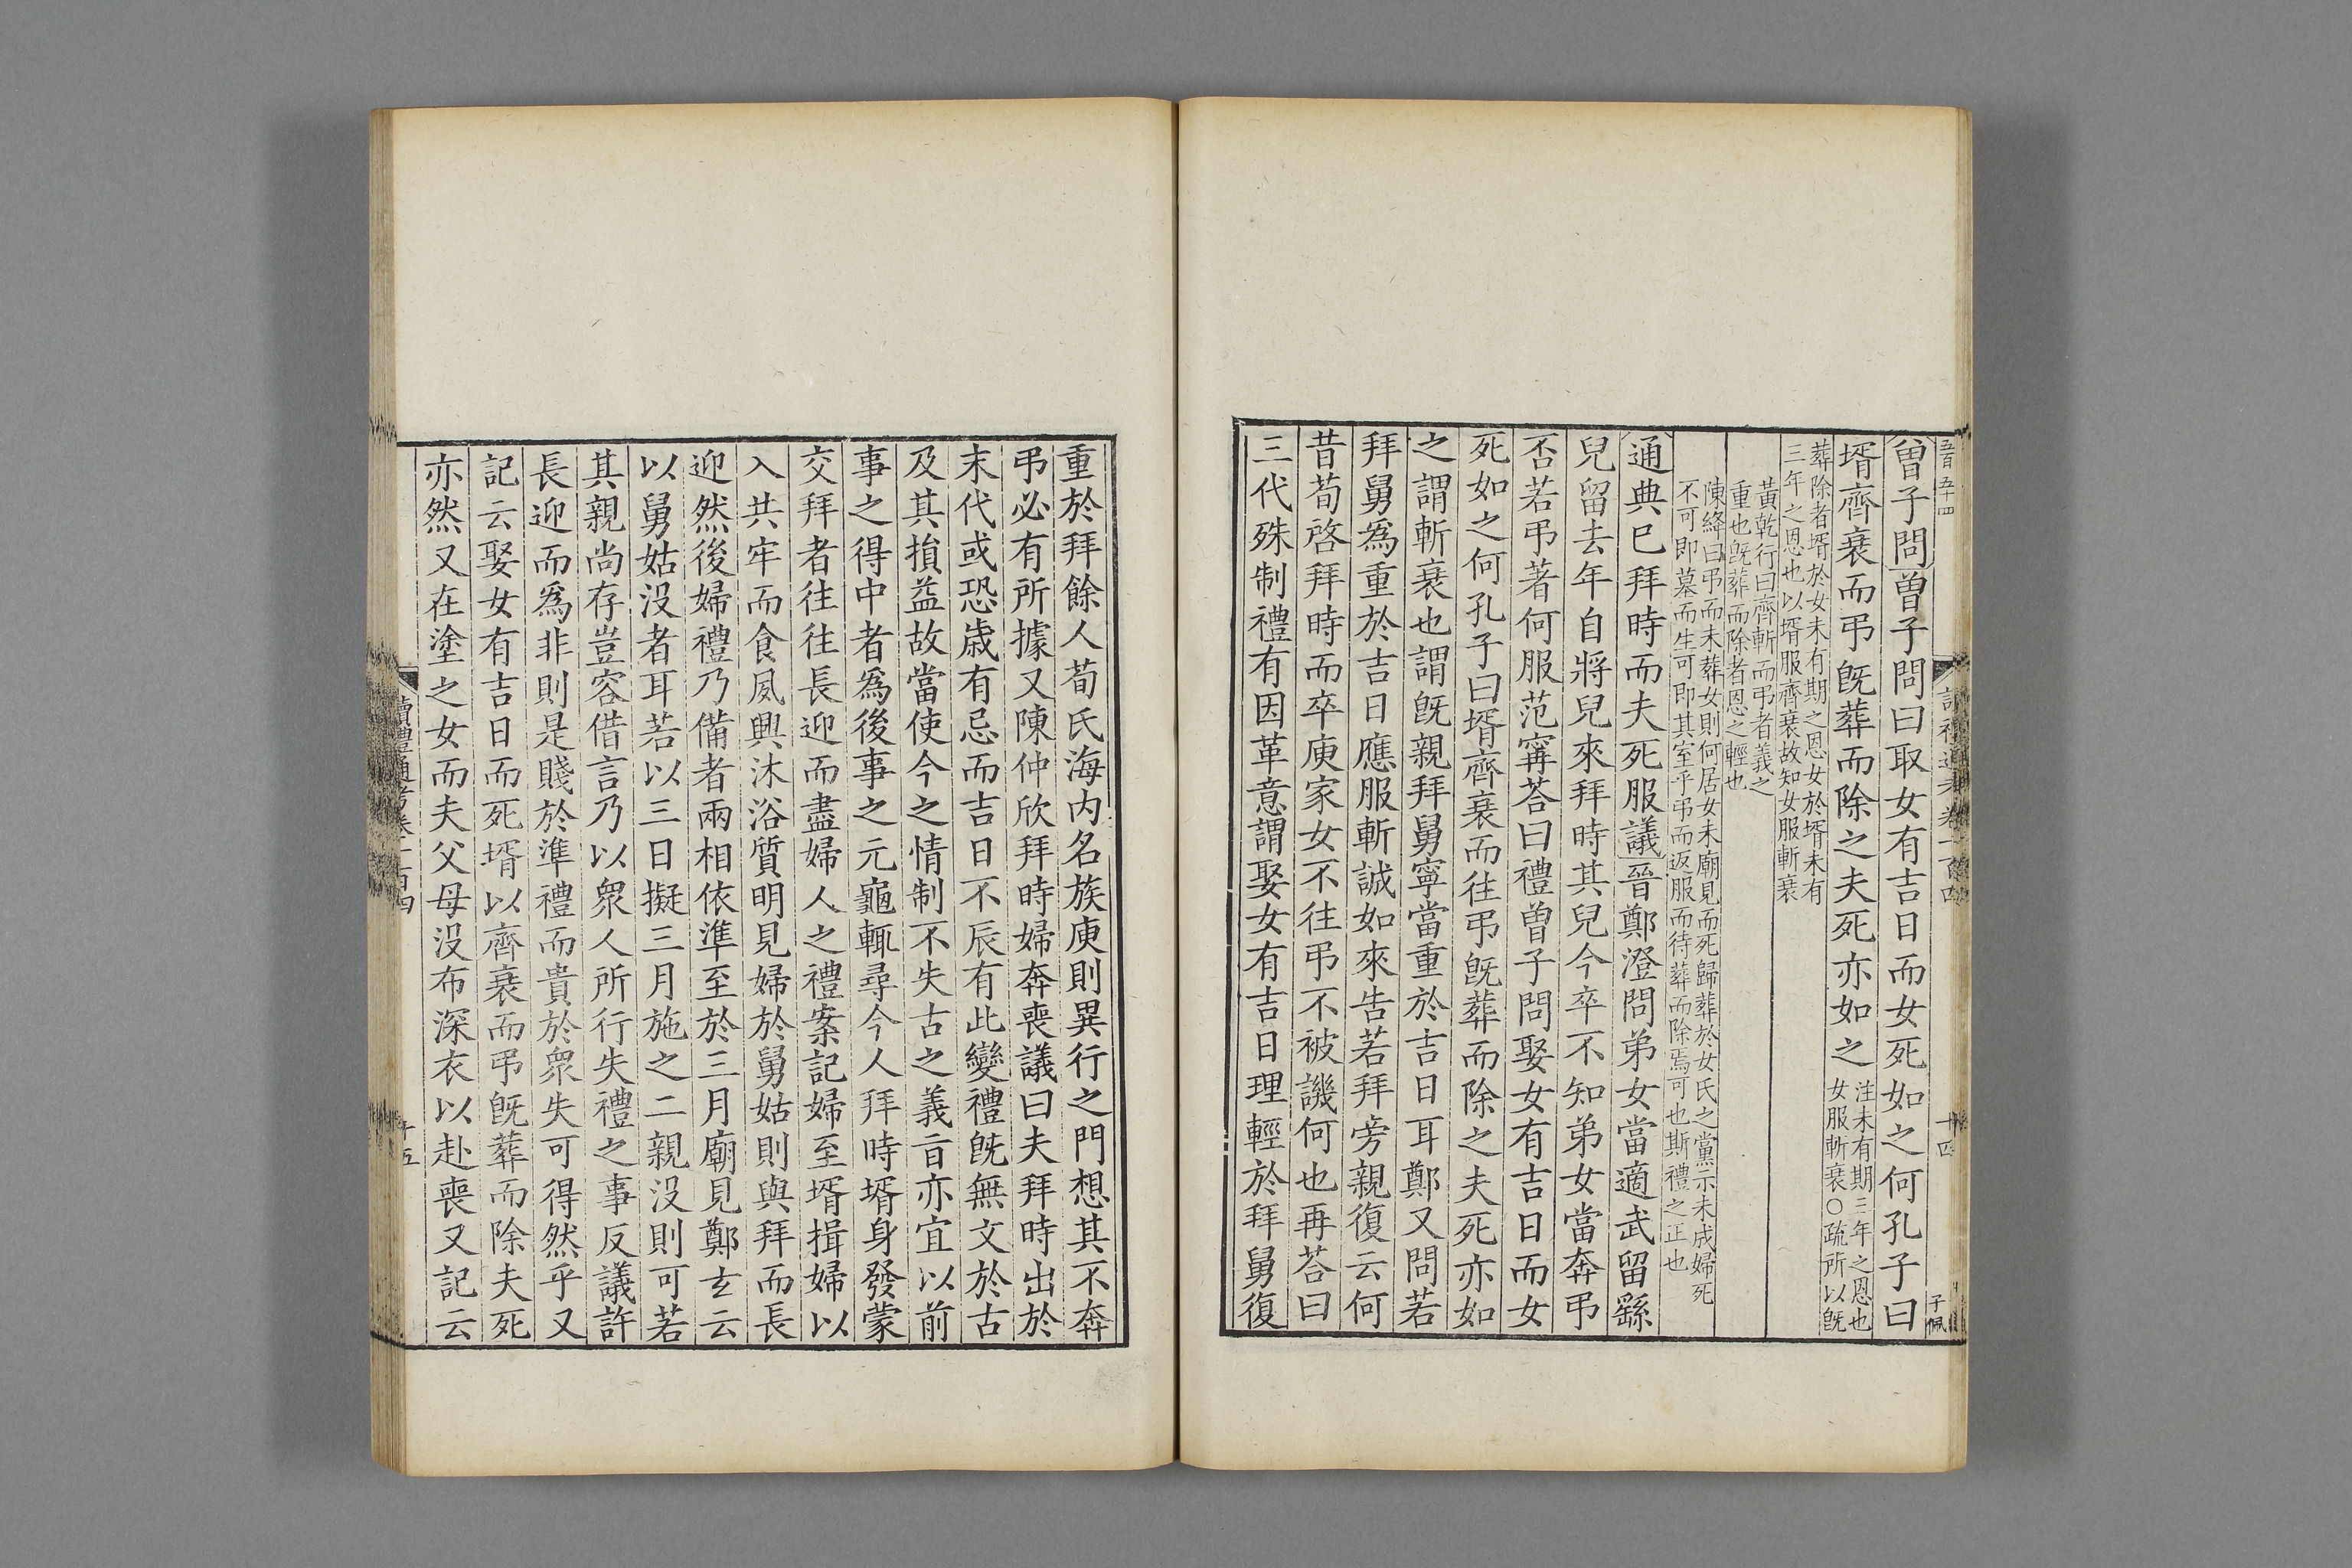 五百五十四
讀禮通考卷一百四
十四
子佩
曾子問曾子問曰取女有吉日而女死如之何孔子曰
壻齊衰而弔旣葬而除之夫死亦如之
注未有期三年之恩也
女服斬衰○疏所以旣
葬除者壻於女未有期之恩女於壻未有
三年之恩也以壻服齊衰故知女服斬衰
黃乾行曰齊斬而弔者義之
重也旣葬而除者恩之輕也
陳絳曰弔而未葬女則何居女未廟見而死歸葬於女氏之黨示未成婦死
不可即墓而生可即其室乎弔而返服而待葬而除焉可也斯禮之正也
通典巳拜時而夫死服議晉鄭澄問弟女當適武留繇
兒留去年自將兒來拜時其兒今卒不知弟女當奔弔
否若弔著何服范寗荅曰禮曾子問娶女有吉日而女
死如之何孔子曰壻齊衰而往弔旣葬而除之夫死亦如
之謂斬衰也謂旣親拜舅寧當重於吉日耳鄭又問若
拜舅爲重於吉日應服斬誠如來告若拜旁親復云何
昔荀啓拜時而卒庾家女不往弔不被譏何也再荅曰
三代殊制禮有因革意謂娶女有吉日理輕於拜舅復
重於拜餘人荀氏海內名族庾則異行之門想其不奔
弔必有所據又陳仲欣拜時婦奔喪議曰夫拜時出於
末代或恐歲有忌而吉日不辰有此變禮旣無文於古
及其損益故當使今之情制不失古之義旨亦宜以前
事之得中者爲後事之元龜輒尋今人拜時壻身發蒙
交拜者往往長迎而盡婦人之禮案記婦至壻揖婦以
入共牢而食夙興沐浴質明見婦於舅姑則與拜而長
迎然後婦禮乃備者兩相依準至於三月廟見鄭玄云
以舅姑没者耳若以三日擬三月施之二親没則可若
其親尚存豈容借言乃以衆人所行失禮之事反議許
長迎而爲非則是賤於準禮而貴於衆失可得然乎又
記云娶女有吉日而死壻以齊衰而弔旣葬而除夫死
亦然又在塗之女而夫父母没布深衣以赴喪又記云
讀禮通考卷一百四
十五